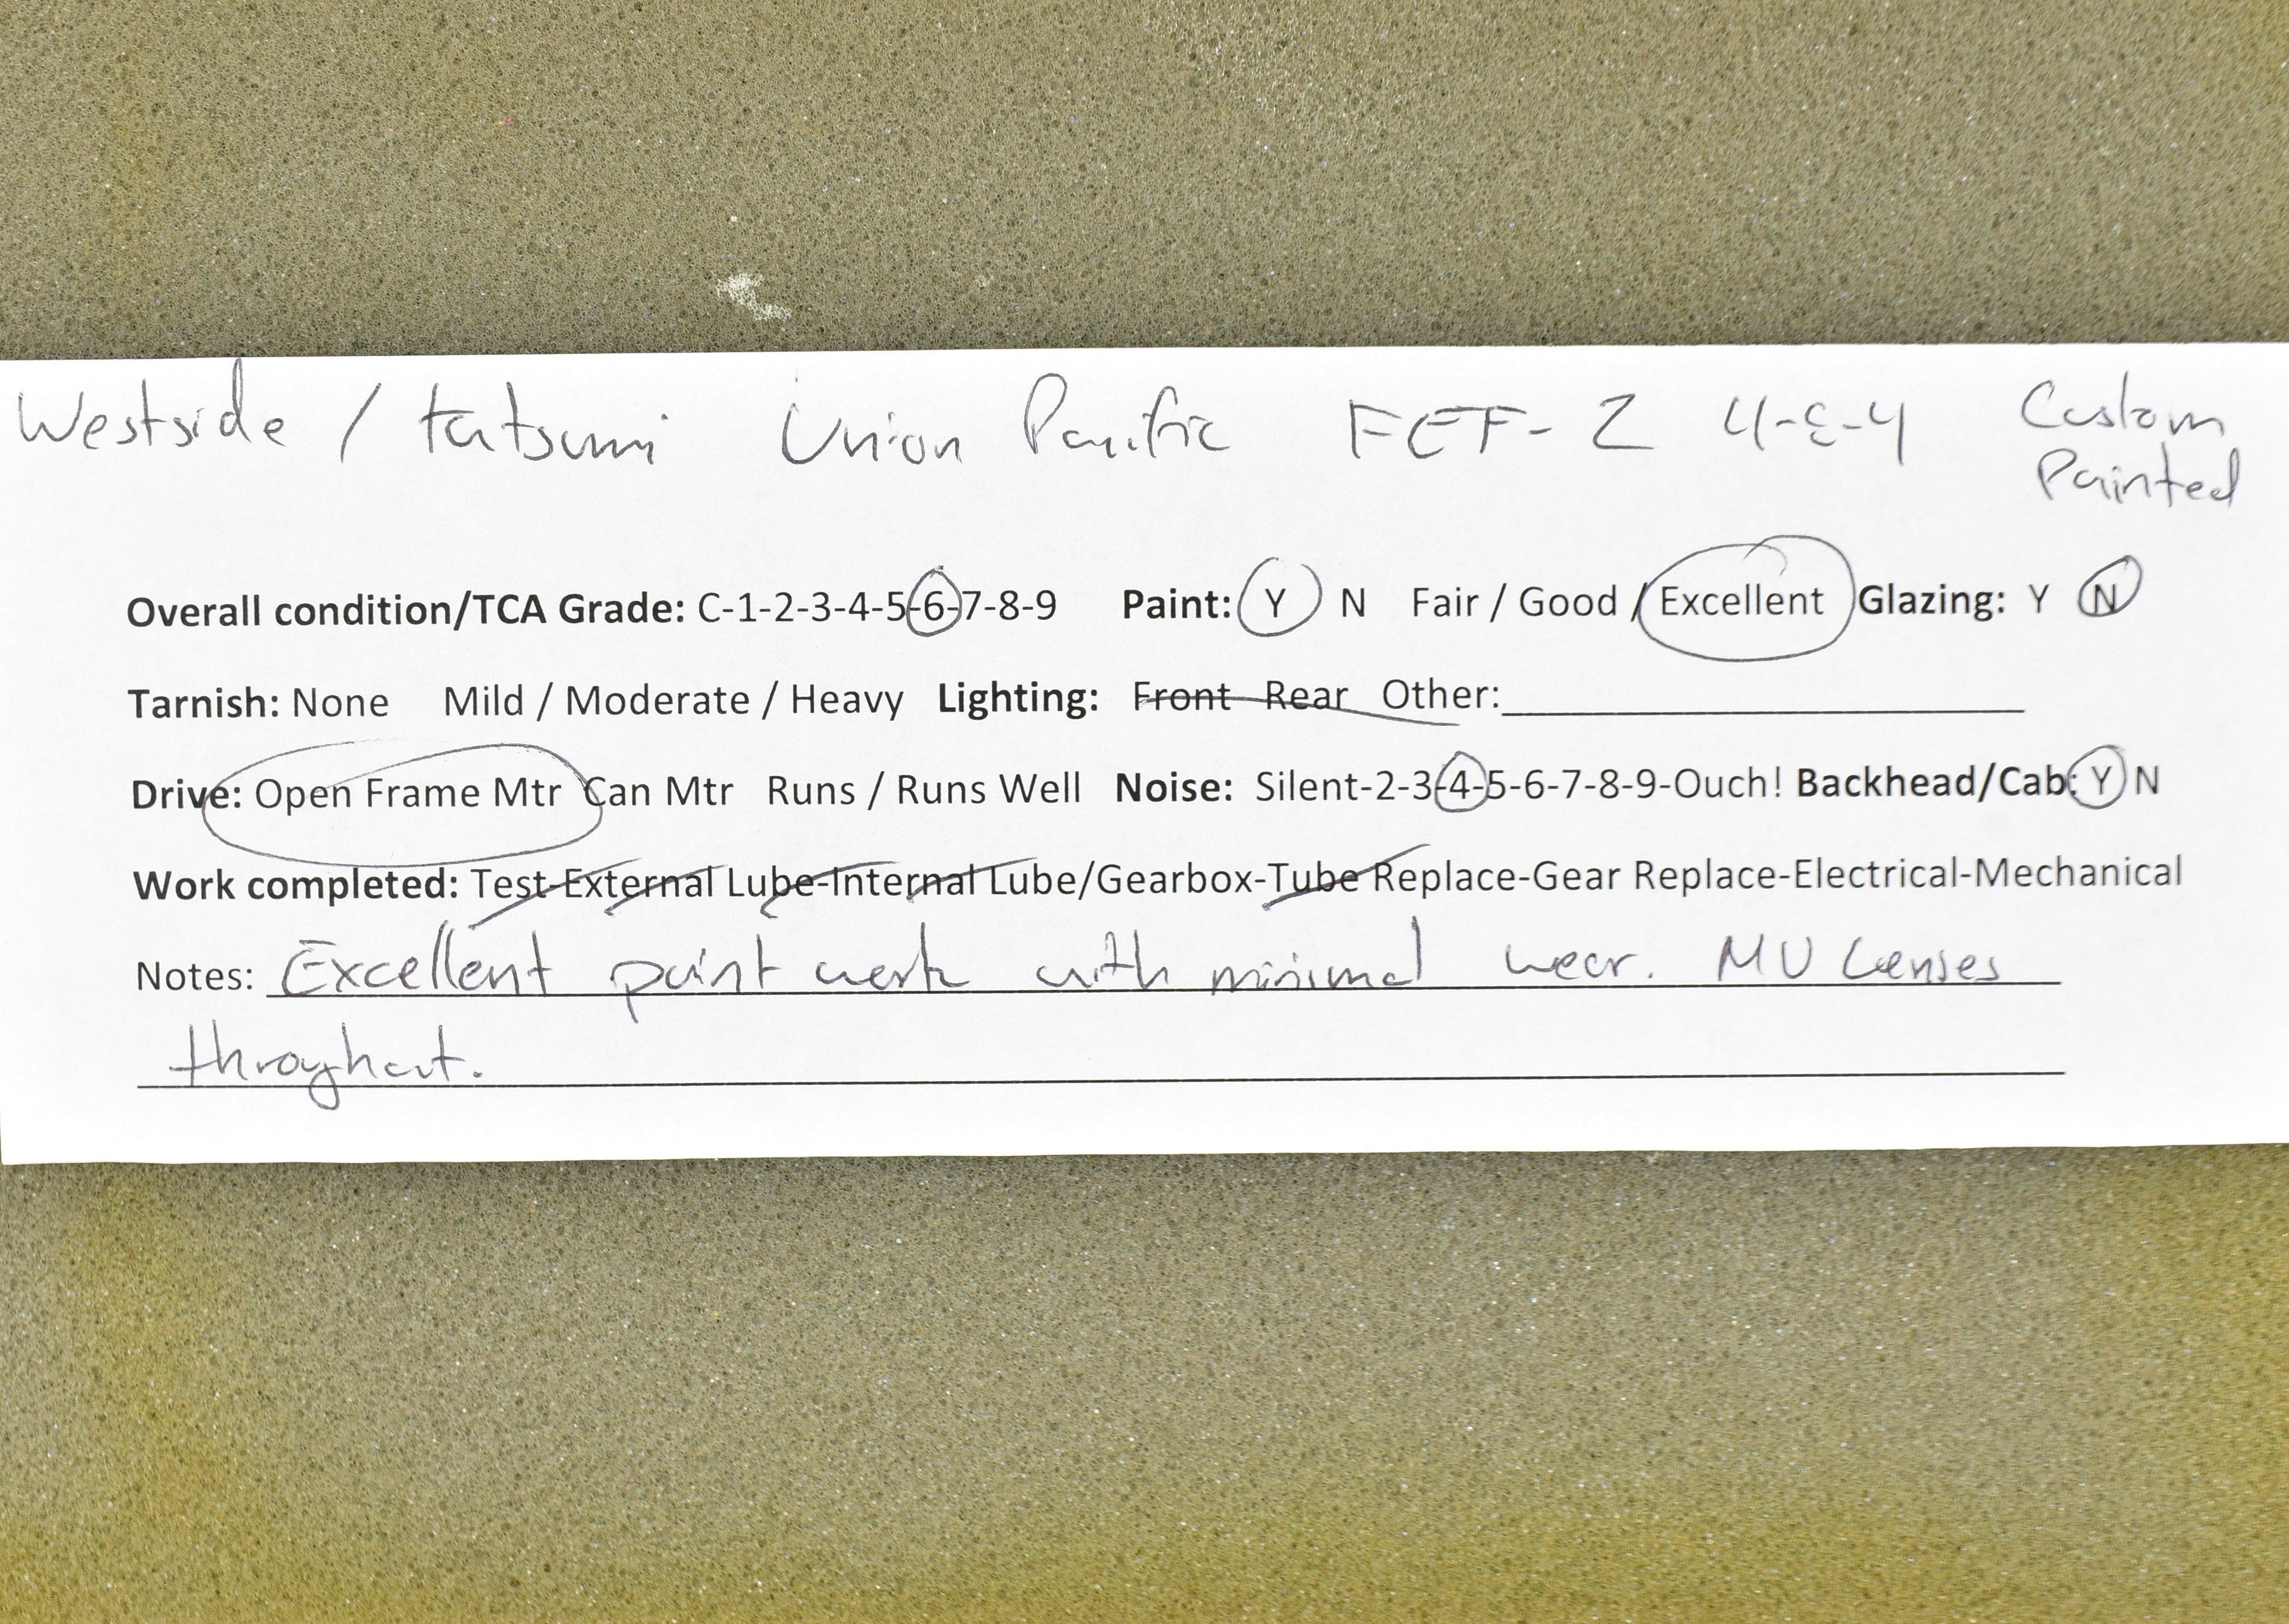 Westside / Tatsumi Union Pacific FEF-2 4-8-4 Custom
Painted
Overall condition/TCA Grade: C-1-2-3-4-5-6-7-8-9 Paint: Y N Fair / Good / Excellent Glazing: Y N
Tarnish: None Mild / Moderate / Heavy Lighting: Front Rear Other:
Drive: Open Frame Mtr Can Mtr Runs / Runs Well Noise: Silent-2-3-4-5-6-7-8-9-Ouch! Backhead/Cab: Y N
Work completed: Test-External Lube-Internal Lube/Gearbox-Tube Replace-Gear Replace-Electrical-Mechanical
Notes: Excellent paint work with minimal wear. MV Lenses
throughout.